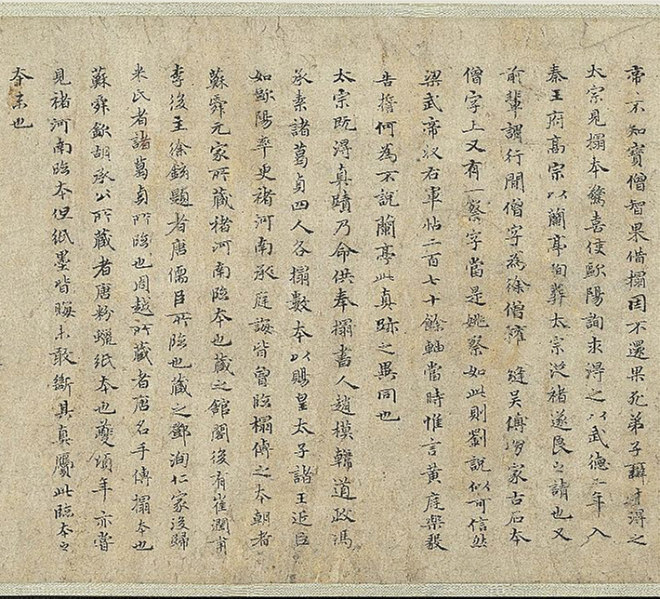 帝不知寶僧智果借搨因不還果死弟子辯才得之
太宗見搨本驚喜使歐陽詢求得之以武德二年入
秦王府高宗以蘭亭殉葬太宗從褚遂良之請也又
前輩謂行間僧字為徐僧權 縫吳傅朋家古石本
僧字上又有一察字當是姚察如此則劉說似可信然
梁武帝收右軍帖二百七十餘軸當時惟言黃庭樂毅
告誓何為不說蘭亭此真跡之異同也
太宗既得真蹟乃命供奉搨書人趙模韓道政馮
承素諸葛貞四人各搨數本以賜皇太子諸王近臣
如歐陽率更褚河南承庭誨皆曾臨搨傳之本朝者
蘇舜元家所藏褚河南臨本也藏之館閣後有崔潤甫
李後主徐鉉題者唐儒臣所臨也藏之鄧洵仁家後歸
米氏者諸葛貞所臨也周越所藏者唐名手傳搨本也
蘇舜欽胡承公所藏者唐粉蠟紙本也夔頃年亦嘗
見褚河南臨本但紙墨皆晦未敢斷其真贗此臨本之
本末也